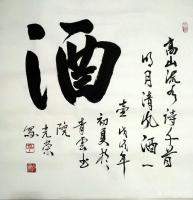 酒
高山流水诗千首
明月清风酒一
壶 戊戌年
初夏於
青云书
院
克荣
写